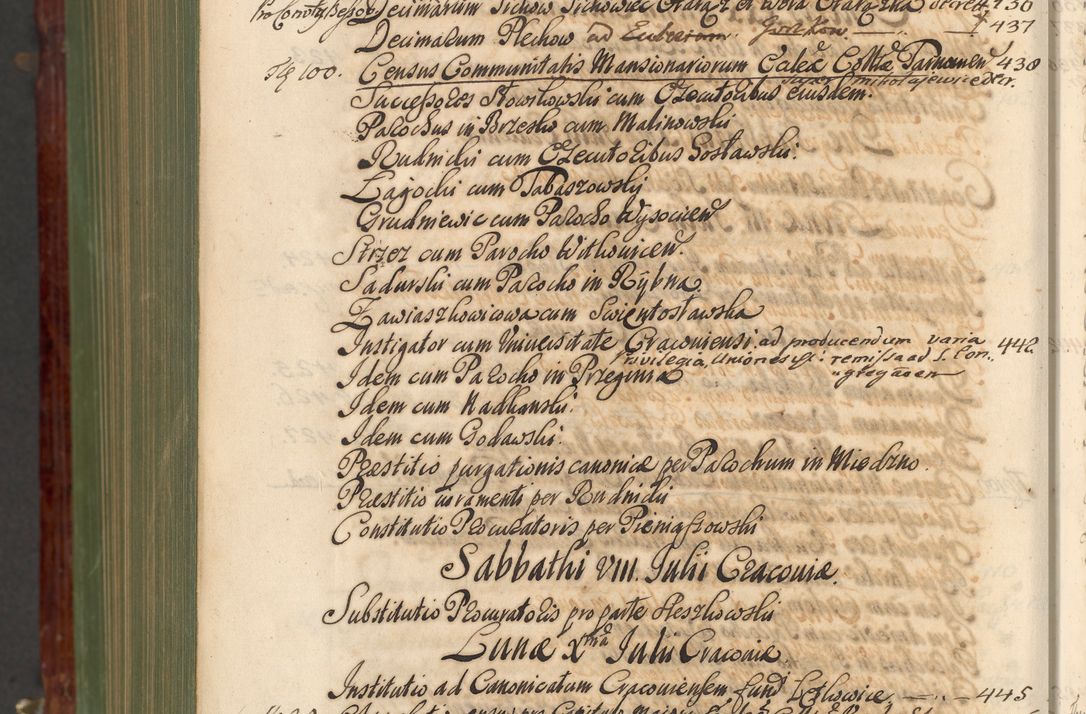 Decimarum Sichow Sichowiec 436
Decimarum Plechow ad 437
fl. 100. Census Communitatis Mansionariorum Collæ Tarnoven 438
Sucessores Stowikowski cum Executoribus eiusdem.
Parochus in Brzesko cum Malinowski
Rudnicki cum Executoribus Gosławski.
Łagocki cum Tabaszowski
Grudniewic cum Parocho Wysocicen
Strzez cum Parocho Witkowicen
Sadurski cum Parocho in Rybna
Zawiaszkowicowa cum Swientosławska
Instigator cum Universitate Cracoviensi ad producendum varia 442
privilegia, Uniones remissa ad S. Con-
"gregaōen
Idem cum Parocho in Przeginia
Idem cum Nadkanski.
Idem cum Godawski.
Præstitio purgationis canonicæ per Parochum in Miedzno.
Præstitio iuramenti per Rudnicki
Constitutio Procuratoris per Pieniąszowski
Sabbathi VIII. Julii Cracoviæ.
Substitutio Procuratoris pro parte Heszkowski
Lunæ Xma Julii Cracoviæ
Institutio ad Canonicatum Cracoviensem fundi 445